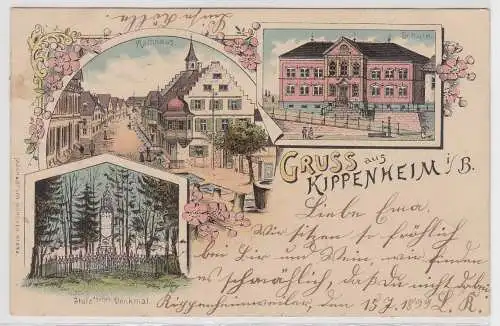 Rathhaus.
Schule.
GRUSS aus
KIPPENHEIM i/B.
Stulz'sches Denkmal.
Liebe Ema.
Wir sitzen so fröhlich
bei Bier und Wein, wir finden
es schmählich, daß Du nicht dabei
Kippenheimweiler, den 15.7.1899 L. K.